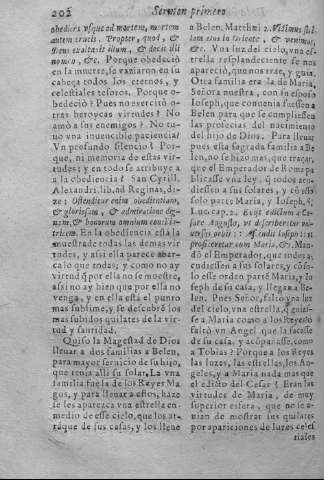 202 Sermon primero
obediens vsque ad mortem, mortem
autem crucis. Propter quod, &
Deus exaltauit illum, & dedit illi
nomen, &c. Porque obedeciò
en la muerte, se vaziaron en su
cabeça todos los eternos, y
celestiales tesoros. Porque o-
bedeciò? Pues no exercitò o-
tras heroycas virtudes? No
amò a sus enemigos? No tu-
vo vna inuencible paciencia?
Vn profundo silencio? Por-
que, ni memoria de estas vir-
tudes; y en todo se atribuye a
a la obediencia? San Cyrill.
Alexandri. lib. ad Reginas, di-
ze: Ostenditur enim obedientiam,
& gloriosam, & admiratione dig-
nam, & honorum omnium concilia-
tricem. En la obediencia està la
muestra de todas las demas vir-
tudes, y assi ella parece abar-
calo que todas; y como no ay
virtud q̃ por ella no se muestre,
assi no ay bien que por ella no
venga, y en ella està el punto
mas sublime, y se descubrẽ los
mas subidos quilates de la vir-
tud y santidad.
Quiso la Magestad de Dios
lleuar a dos familias a Belen,
para mayor seruicio de su hijo,
que tenia alli su solar. La vna
familia fuela de los Reyes Ma
gos, y para lleuar a estos, haze
se les aparezca vna estrella en
medio de esse cielo, que los at-
rayque de sus casas, y los lleue
a Belen, Matthæi 2. Vidimus stel-
lam eius in Oriente, & venimus,
&c. Vna luz del cielo, vna es-
trella resplandeciente se nos
apareciò, que nos trae, y guia.
Otra familia era la de Maria,
Señora nuestra, con su esposo
Ioseph, que conuenia fuessen a
Belen para que se cumpliessen
las profecias del nacimiento
del hijo de Dios. Para lleuar
pues esta sagrada familia a Be-
len, no se hizo mas, que traçar,
que el Emperador de Roma pu
blicasse vna ley, q̃ todos acu-
diessen a sus solares, y cõ esso
solo parte Maria, y Ioseph,
Luc. cap. 2. Exijt edictum a Ce-
sare Augusto, vt describeretur vni-
uersus orbis: Ascendit Ioseph: vt
profiteretur cum Maria, &c. Man-
dò el Emperador, que todos a-
cudiessen a sus solares, y cõ so-
lo esse orden parte Maria, y Io
seph de su casa, y llegan a Be-
len. Pues Señor, faltò vna luz
del cielo, vna estrella, q̃ guias-
se a Maria como a los Reyes? o
faltò vn Angel que la sacasse
de su casa, y acõpañasse, como
a Tobias? Porque a los Reyes
las luzes, las estrellas, los An-
geles, y a Maria nada mas que
el edicto del Cesar? Eran las
virtudes de Maria, de muy
superior esfera, que no se a-
uian de mostrar sus quilates
por apariciones de luzes celes-
tiales